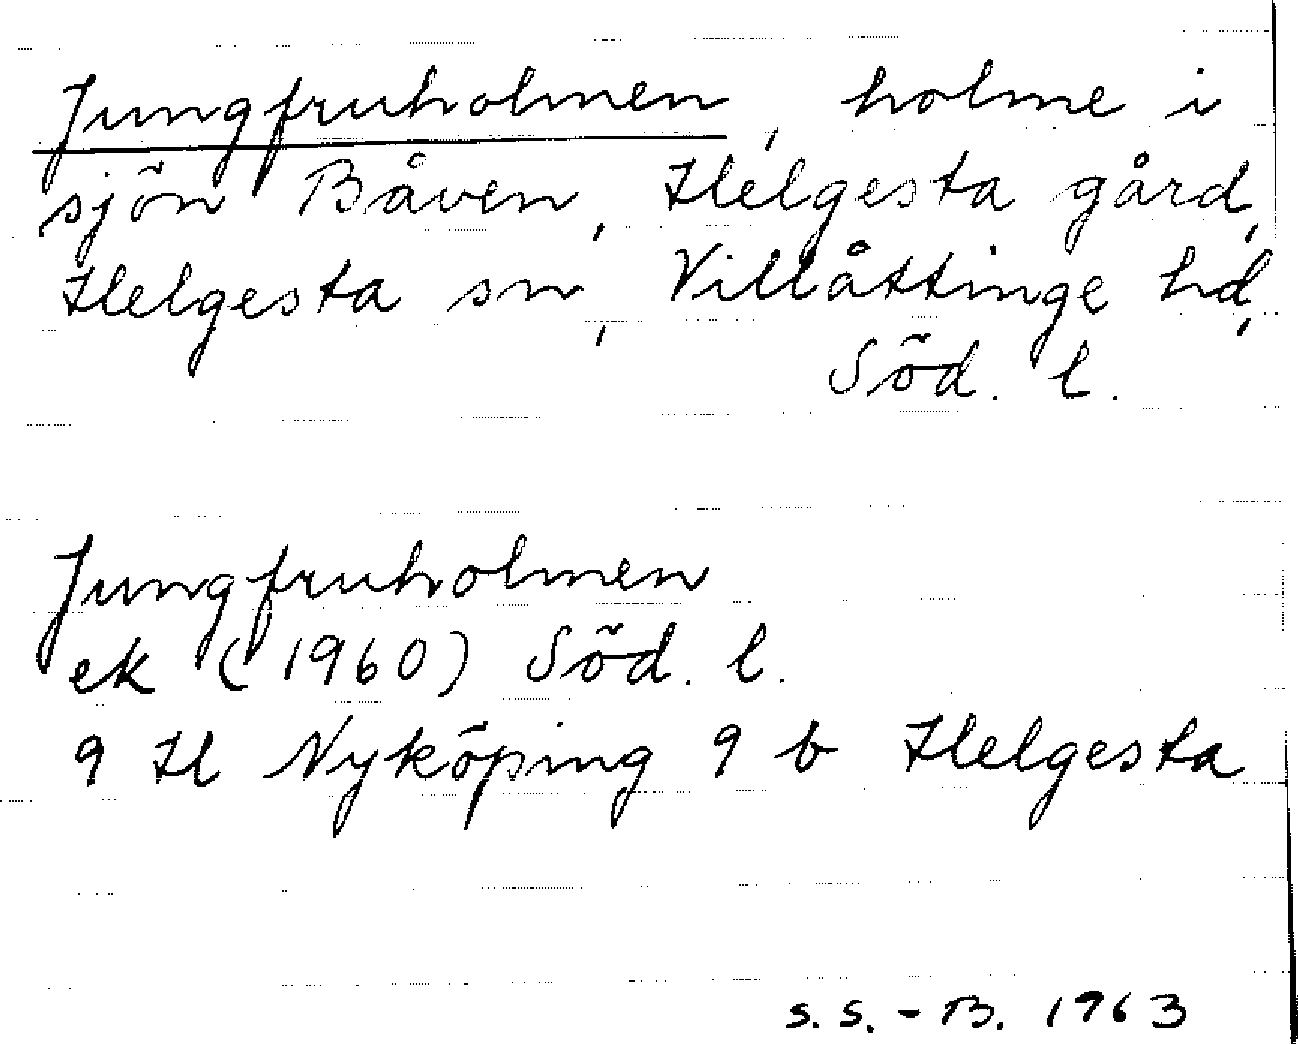 Jungfruholmen, holme i
sjön Båven, Helgesta gård,
Helgesta sn, Villåttinge hd,
Söd. l.
Jungfruholmen
ek (1960) Söd. l.
9 H Nyköping 9 b Helgesta
S.S.-B. 1963